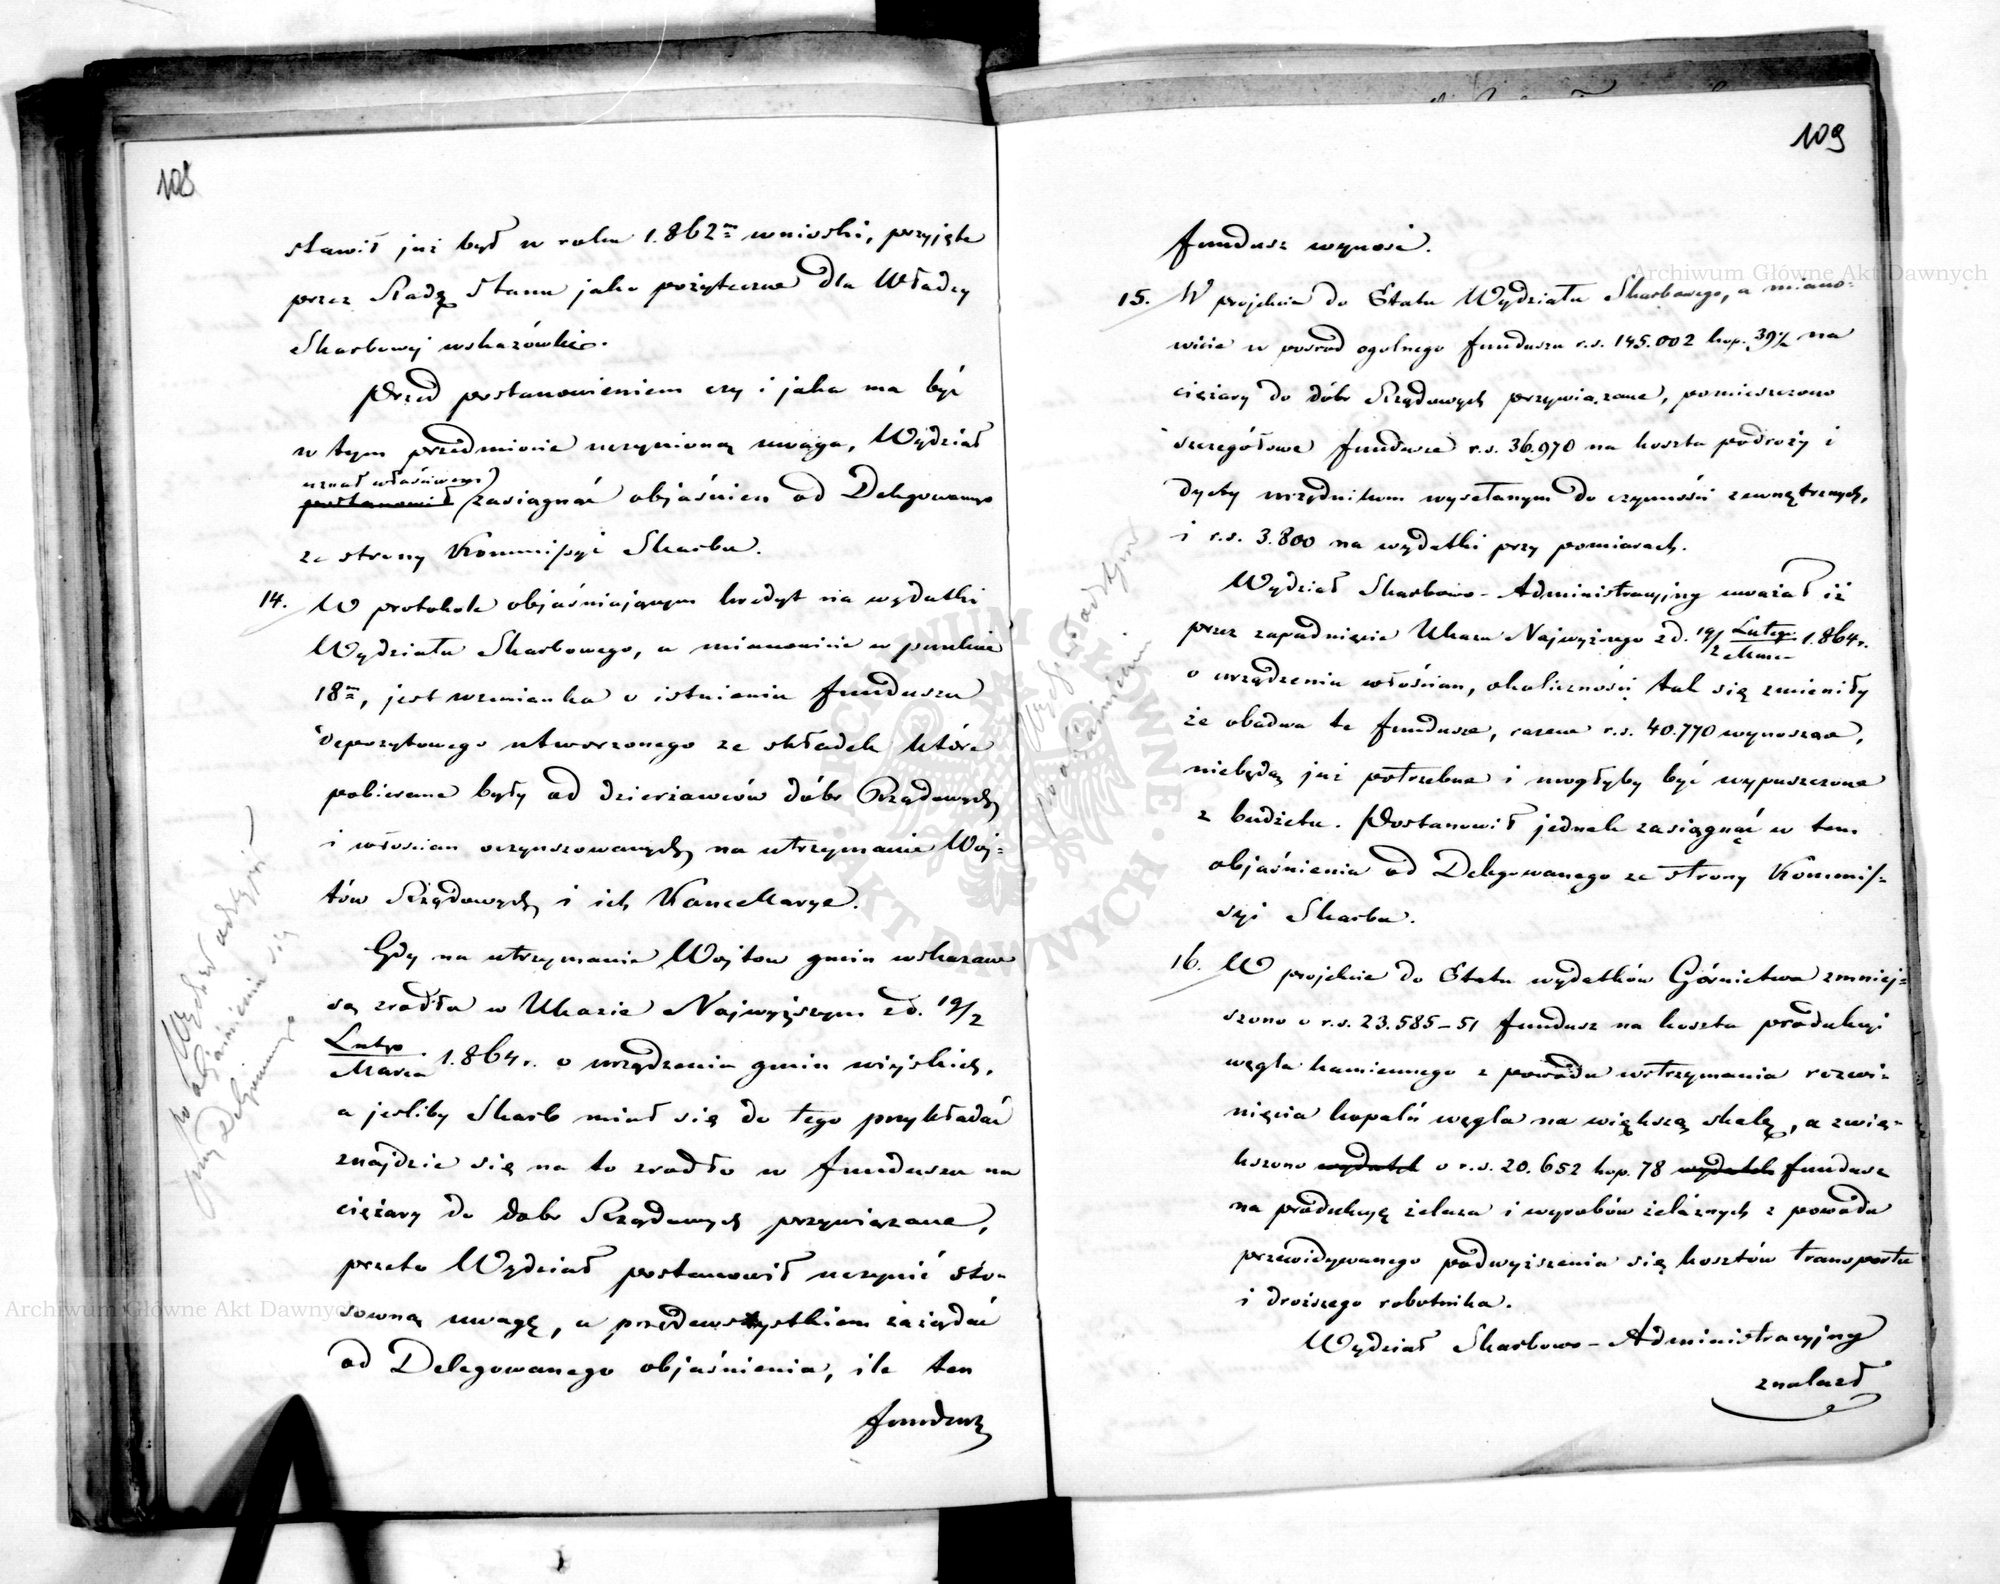 108
stawił już był w roku 1.862m wnioski, przyjęte
przez Radę Stanu jako pożyteczne dla Władzy
Skarbowej wskazówki.
Przed postanowieniem czy i jaka ma być
w tym przedmiocie uczynioną uwaga, Wydział
uznał właściwem
postanowił zasiągnąć objaśnień od Delegowanego
ze strony Kommissyi Skarbu.
14. W protokole objaśniającym kredyt na wydatki
Wydziału Skarbowego, a mianowicie w punkcie
18m, jest wzmianka o istnieniu funduszu
depozytowego utworzonego ze składek które
pobierane były od dzierżawców dóbr Rządowych
i włościan oczynszowanych, na utrzymanie Wój-
tów Rządowych i ich Kancellarye.
Gdy na utrzymanie Wojtow gmin wskazane
są zrodła w Ukazie Najwyższym z d. 19/2
Lutego
Marca 1.864r. o urządzeniu gmin wiejskich,
a jesliby Skarb miał się do tego przykładać
znajdzie się na to zrodło w funduszu na
ciężary do dobr Rządowych przywiązane,
przeto Wydział postanowił uczynić sto-
sowną uwagę, a przedewszystkiem zażądać
od Delegowanego objaśnienia, ile ten
fundusz
po objaśnieniu się
przy Delegowanego
109
fundusz wynosi.
15. W projekcie do Etatu Wydziału Skarbowego, a miano-
wicie w posrod ogolnego funduszu r.s. 145.002 kop. 39½ na
ciężary do dóbr Rządowych przywiązane, pomieszczono
szczegółowe fundusze r.s. 36.970 na koszta podroży i
dyety urzędnikom wysełanym do czynności zewnętrznych,
i r.s. 3.800 na wydatki przy pomiarach.
Wydział Skarbowo-Administracyjny uważał iż
przez zapadnięcie Ukazu Najwyższego z d. 19/2 Lutego
Marca 1.864r.
o urządzeniu włościan, okoliczności tak się zmieniły
że obadwa te fundusze, razem r.s. 40.770 wynoszące,
niebędą już potrzebne i mogłyby być wypuszczone
z budżetu. Postanowił jednak zasiągnąć w tem
objaśnienia od Delegowanego ze strony Kommis-
syi Skarbu.
16. W projekcie do Etatu wydatków Górnictwa zmniej-
szono o r.s. 23.585-51 fundusz na koszta produkcyi
węgla kamiennego z powodu wstrzymania rozwi-
nięcia kopalń węgla na większą skalę, a zwię-
kszono wydatek o r.s. 20.652 kop. 78 wydatek fundusz
na produkcyę żelaza i wyrobów żelaznych z powodu
przewidywanego podwyższenia się kosztów transportu
i droższego robotnika.
Wydział Skarbowo-Administracyjny
znalazł
Archiwum Główne Akt Dawnych
Archiwum Główne Akt Dawnych
ARCHIWUM GŁÓWNE · AKT DAWNYCH ·